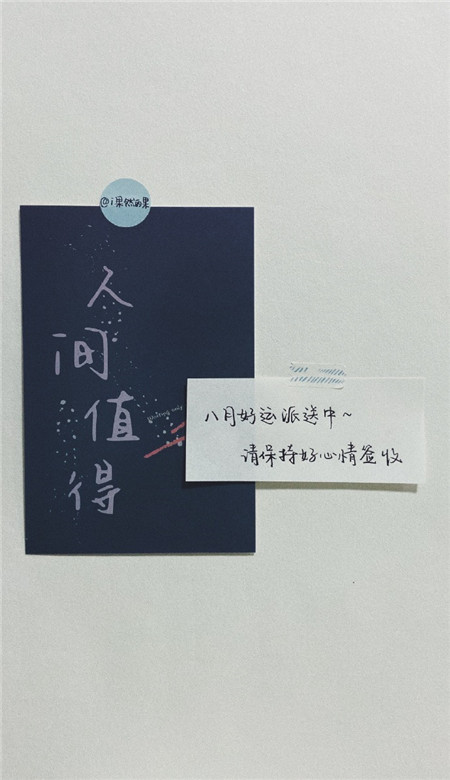 @i果然的果
人
间
值
得
八月好运派送中~
请保持好心情签收